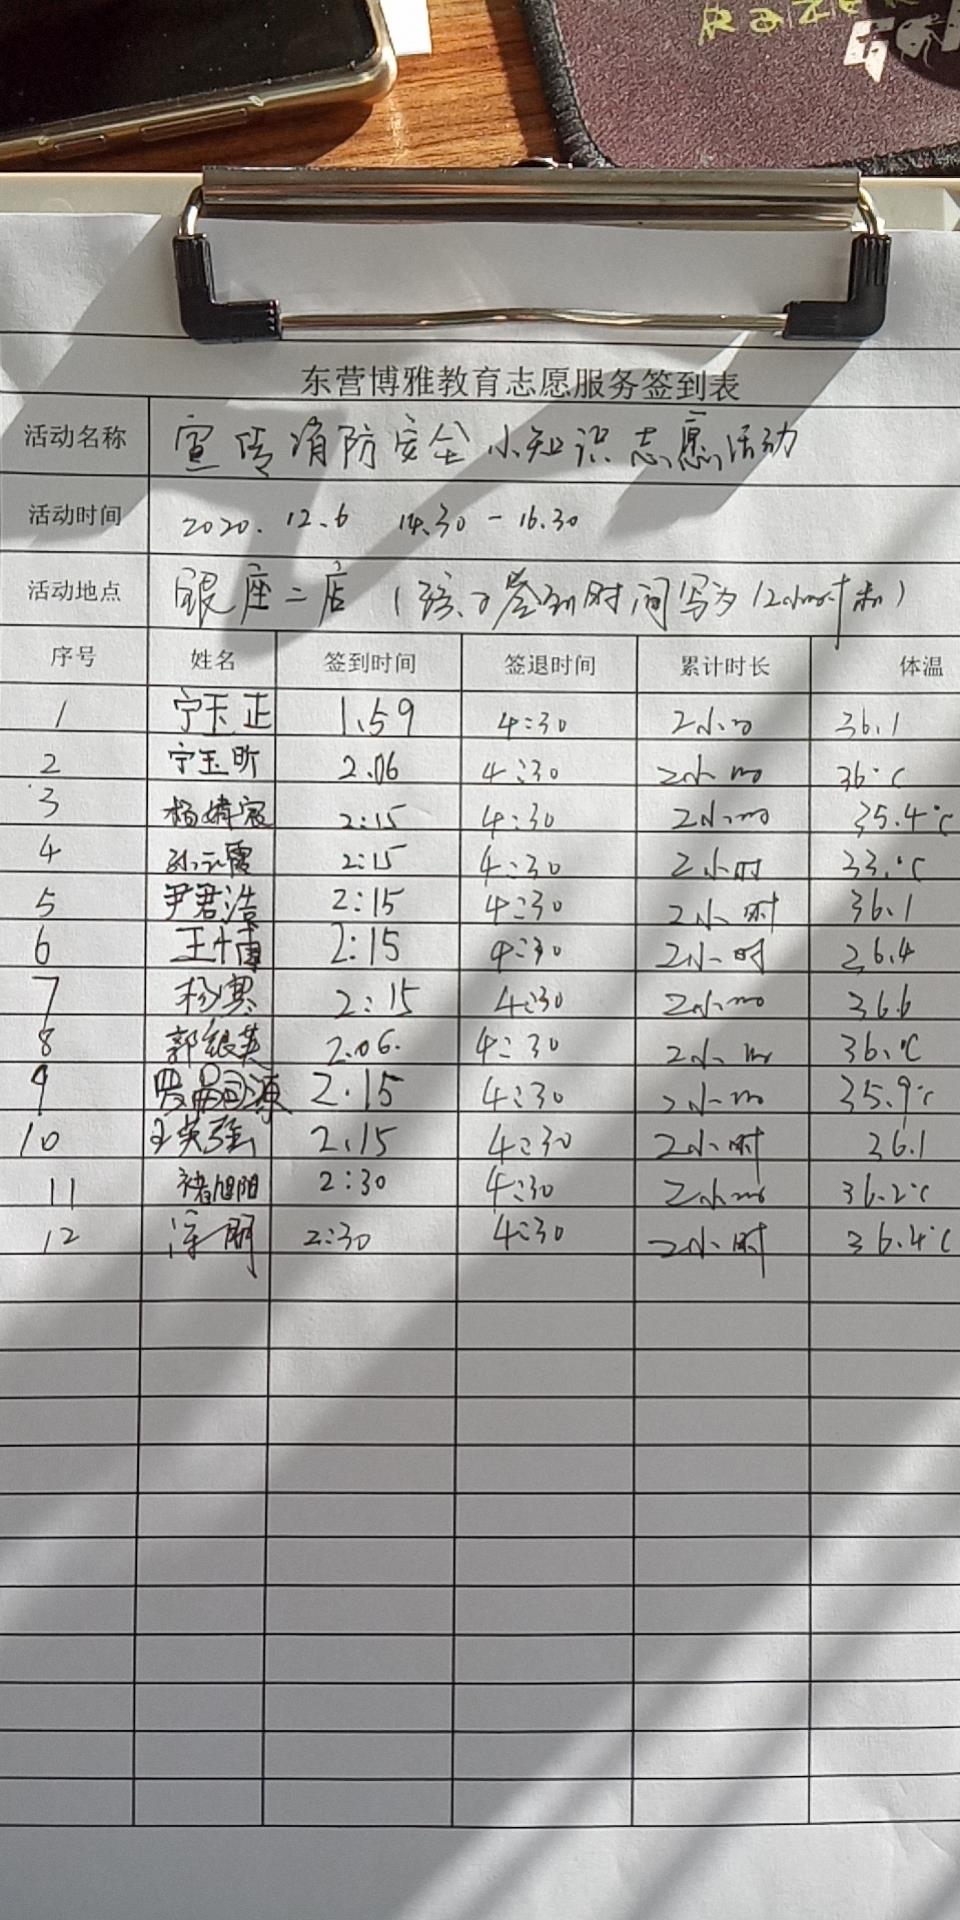 东营博雅教育志愿服务签到表
活动名称 宣传消防安全小知识志愿活动
活动时间 2020.12.6 14.30-16.30
活动地点 银座二店(孩子签到时间写为
序号 姓名 签到时间 签退时间 累计时长 体温
1 宁玉正 1.59 4:30 2小时 36.1
2 宁玉昕 2.06 4:30 2小时 36°C
3 杨婧宸 2:15 4:30 2小时 35.4°C
4 孙元霞 2:15 4:30 2小时 33.°C
5 尹君浩 2:15 4:30 2小时 36.1
6 王博 2:15 4:30 2小时 26.4
7 杨 2:15 4:30 2小时 36.6
8 郭银英 2.06. 4:30 2小时 36.°C
9 2.15 4:30 2小时 35.9°C
10 王英强 2.15 4:30 2小时 36.1
11 褚旭阳 2:30 4:30 2小时 36.2°C
12 2:30 4:30 2小时 36.4°C